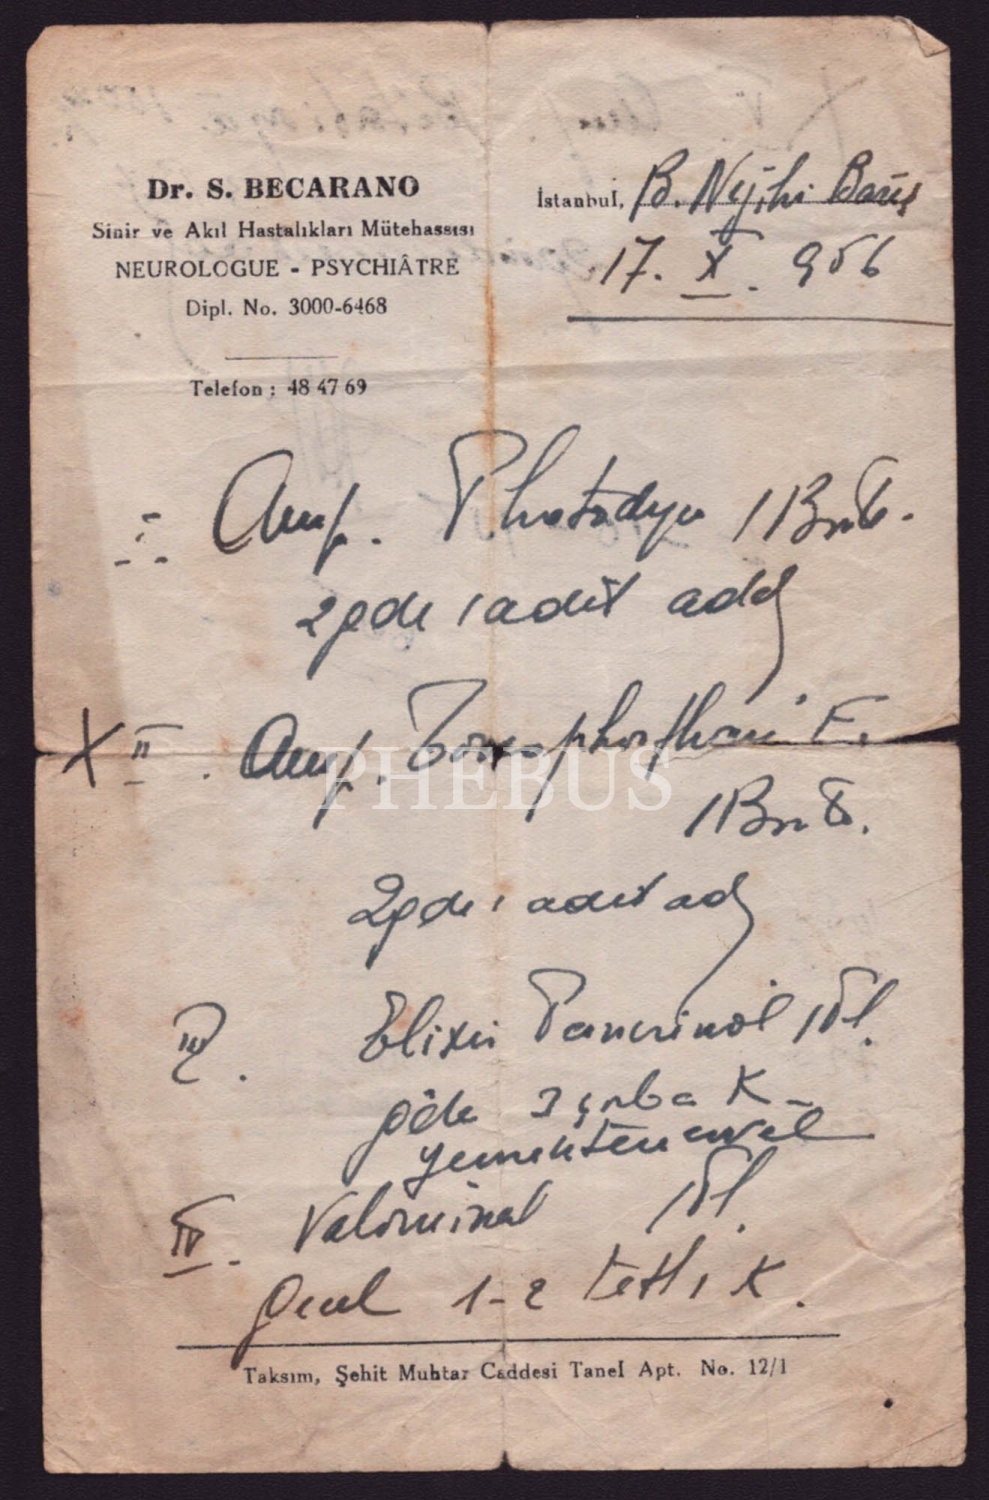 Dr. S. BECARANO
Sinir ve Akıl Hastalıkları Mütehassısı
NEUROLOGUE - PSYCHIÂTRE
Dipl. No. 3000-6468
Telefon : 48 47 69
İstanbul, B. Nejihi Barış
17. X. 956
I Amp. 1
2 gde 1 adet
X II. Amp. Tonophosphan F.
1
2 gde 1 adet
PHEBUS
III. Elixir 1 Şl.
gde 3 çorba K.
yemekten evvel
IV. Valominal 1 Şl.
Gecel 1-2 tatlı K.
Taksim, Şehit Muhtar Caddesi Tanel Apt. No. 12/1